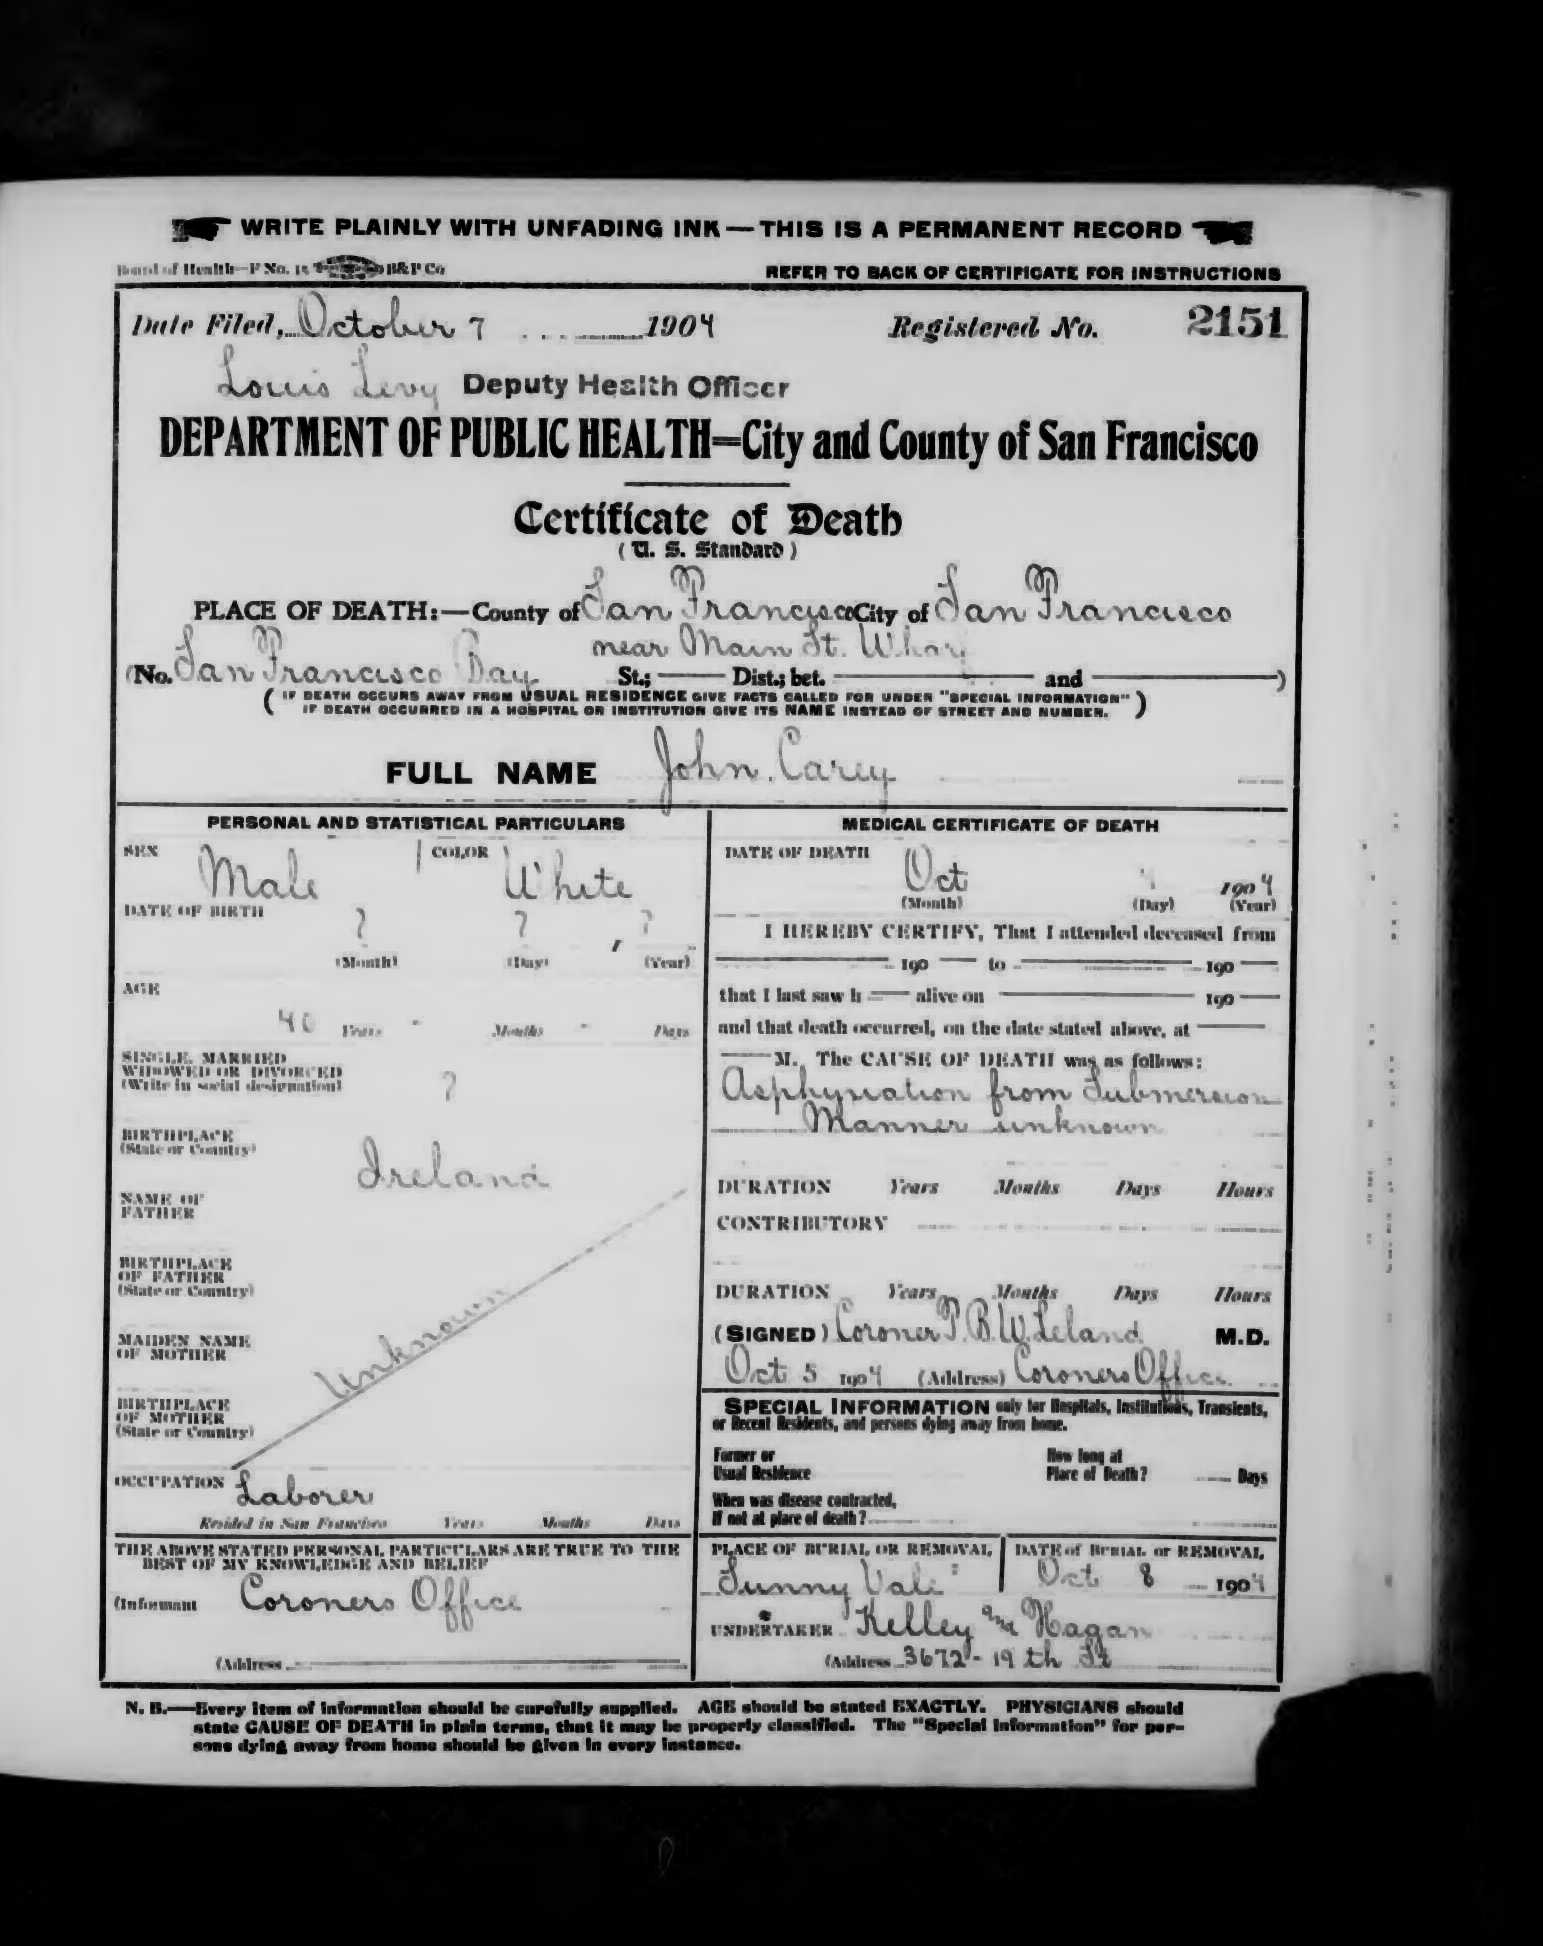 WRITE PLAINLY WITH UNFADING INK — THIS IS A PERMANENT RECORD
Board of Health—F No. 15 B&P Co
REFER TO BACK OF CERTIFICATE FOR INSTRUCTIONS
Date Filed, October 7 1904 Registered No. 2151
Louis Levy Deputy Health Officer
DEPARTMENT OF PUBLIC HEALTH=City and County of San Francisco
Certificate of Death
(U. S. Standard)
PLACE OF DEATH:—County of San Francisco City of San Francisco
near Main St. Wharf
(No. San Francisco Bay St.; Dist.; bet. and )
(IF DEATH OCCURS AWAY FROM USUAL RESIDENCE GIVE FACTS CALLED FOR UNDER "SPECIAL INFORMATION"
IF DEATH OCCURRED IN A HOSPITAL OR INSTITUTION GIVE ITS NAME INSTEAD OF STREET AND NUMBER.)
FULL NAME John Carey
PERSONAL AND STATISTICAL PARTICULARS
SEX Male COLOR White
DATE OF BIRTH ? ? , ?
(Month) (Day) (Year)
AGE
40 Years - Months - Days
SINGLE, MARRIED
WIDOWED OR DIVORCED
(Write in social designation) ?
BIRTHPLACE
(State or Country) Ireland
NAME OF
FATHER
BIRTHPLACE
OF FATHER
(State or Country)
Unknown
MAIDEN NAME
OF MOTHER
BIRTHPLACE
OF MOTHER
(State or Country)
OCCUPATION Laborer
Resided in San Francisco Years Months Days
THE ABOVE STATED PERSONAL PARTICULARS ARE TRUE TO THE
BEST OF MY KNOWLEDGE AND BELIEF
(Informant Coroners Office
(Address
MEDICAL CERTIFICATE OF DEATH
DATE OF DEATH Oct 4 1904
(Month) (Day) (Year)
I HEREBY CERTIFY, That I attended deceased from
190 to 190
that I last saw h alive on 190
and that death occurred, on the date stated above, at
M. The CAUSE OF DEATH was as follows:
Asphyxiation from Submersion
Manner unknown
DURATION Years Months Days Hours
CONTRIBUTORY
DURATION Years Months Days Hours
(SIGNED) Coroner T. B. W. Leland M.D.
Oct 5 1904 (Address) Coroners Office
SPECIAL INFORMATION only for Hospitals, Institutions, Transients,
or Recent Residents, and persons dying away from home.
Former or
Usual Residence
How long at
Place of Death? Days
When was disease contracted,
If not at place of death?
PLACE OF BURIAL OR REMOVAL DATE of BURIAL or REMOVAL
Sunny Vale Oct 8 1904
UNDERTAKER Kelley and Hagan
(Address 3672 - 19th St
N. B.—Every item of information should be carefully supplied. AGE should be stated EXACTLY. PHYSICIANS should
state CAUSE OF DEATH in plain terms, that it may be properly classified. The "Special Information" for per-
sons dying away from home should be given in every instance.